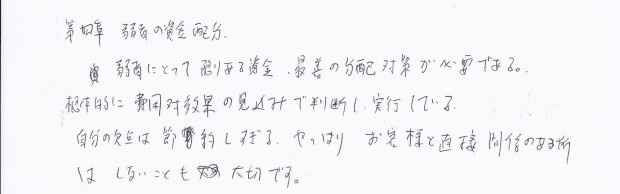 第四章 弱者の資金配分.
弱者にとって限りある資金、最善の分配対策が必要である。
根本的に費用対効果の見込みで判断し、実行している.
自分の欠点は節約しすぎる. やっぱり お客様と直接関係のある所
は しないことも大切です。